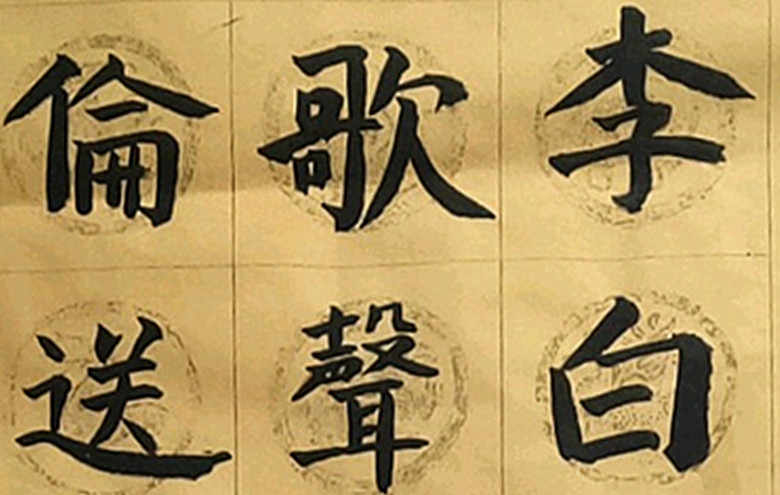 李白
歌聲
倫送